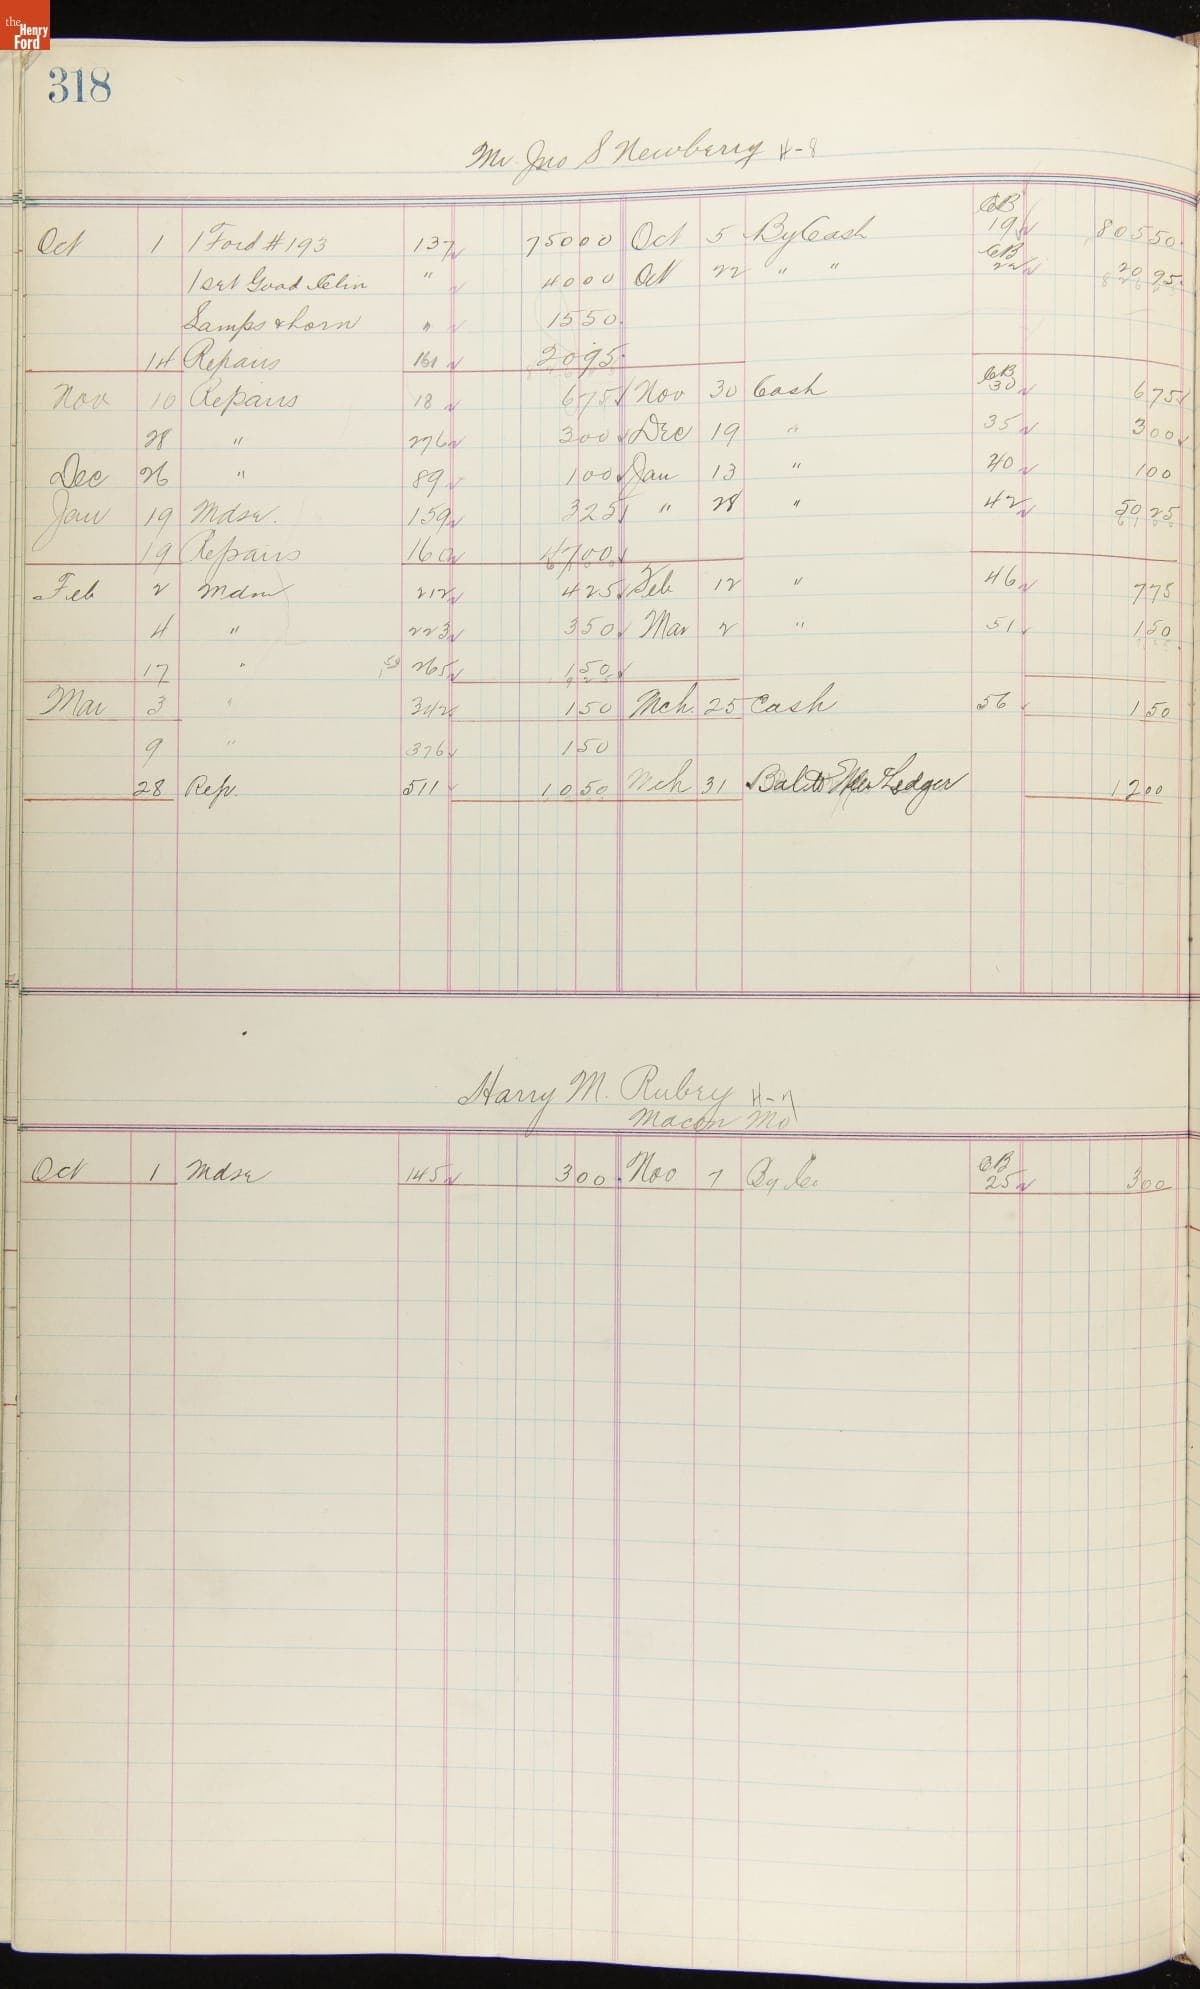 the Henry Ford
318
Mr. Jno S Newberry H-8
Oct 1 1 Ford #193 137 75000 Oct 5 By Cash CB 19 80550
1 set Good Clin " 4000 Oct 22 " " CB 22 2095
Lamps & horn " 1550
14 Repairs 161 2095
Nov 10 Repairs 18 675 Nov 30 Cash CB 30 675
28 " 276 300 Dec 19 " 35 300
Dec 26 " 89 100 Jan 13 " 40 100
Jan 19 Mdse. 159 325 " 28 " 42 5025
19 Repairs 160 4700
Feb 2 Mdse 212 425 Feb 12 " 46 775
4 " 223 350 Mar 2 " 51 150
17 " 265 150
Mar 3 " 342 150 Mch. 25 Cash 56 150
9 " 376 150
28 Rep. 511 1050 Mch 31 Bal to Ledger 1200
Harry M. Rubey H-7
Macon Mo
Oct 1 Mdse 145 300 Nov 7 By Co CB 25 300